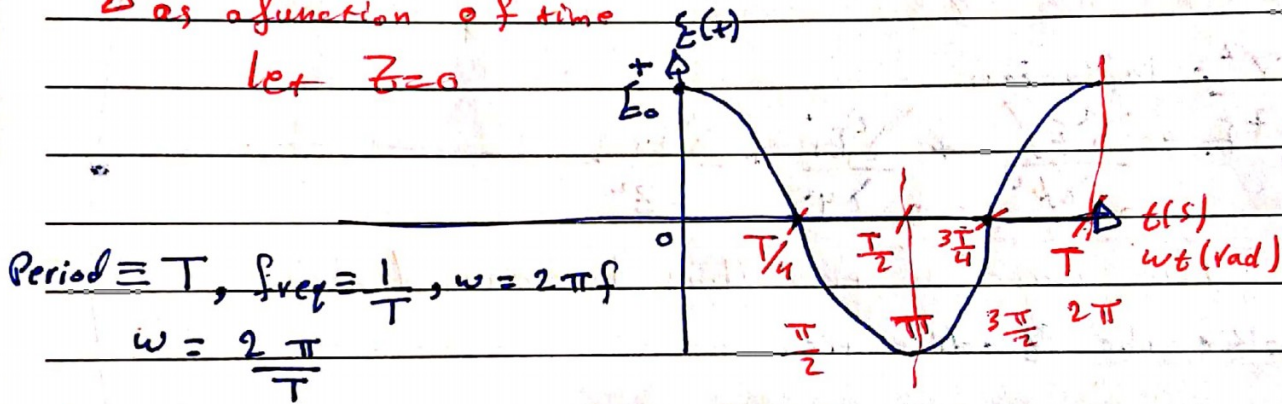 as a function of time
let Z=0
ξ(t)
+
E₀
0
T/4 T/2 3T/4 T t(s)
wt(rad)
π/2 π 3π/2 2π
Period ≡ T, freq = 1/T, w = 2πf
w = 2π/T